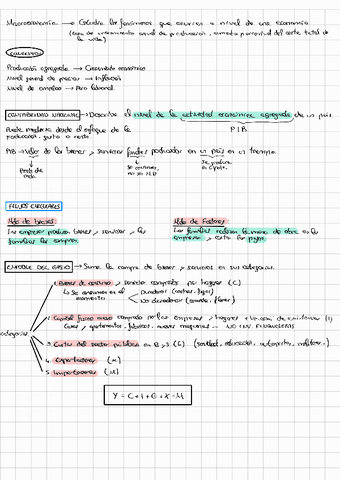 Macroeconomía → Estudia los fenómenos que ocurren a nivel de una economía
(tasa de crecimiento anual de producción, aumento porcentual del coste total de la vida)
Producción agregada → Crecimiento económico
Nivel general de precios → Inflación
Nivel de empleo → Paro laboral
CONTABILIDAD NACIONAL → Describe el nivel de la actividad económica agregada de un país
PIB
Puede medirse desde el enfoque de la
producción, gasto o renta
PIB → Valor de los bienes y servicios finales producidos en un país en un tiempo
Se produce
FLUJOS CIRCULARES
Mdo de bienes
Mdo de Factores
Las empresas producen bienes y servicios y las
familias los compran
Las familias realizan la mano de obra en las
empresas y estas las pagan
ENFOQUE DEL GASTO → Suma la compra de bienes y servicios en sus categorías.
1. Bienes de consumo y servicios comprados por hogares (C)
→ Se consumen en el momento
Duraderos (coches,
No duraderos (comida,
2. Capital físico nuevo comprado por las empresas y hogares + Variación de existencias (I)
NO INV. FINANCIERAS
categorías
3. Gasto del sector público en B y S (G) (sanidad, educación, autopistas, militar...)
4. Exportaciones (X)
5. Importaciones (M)
Y = C + I + G + X - M